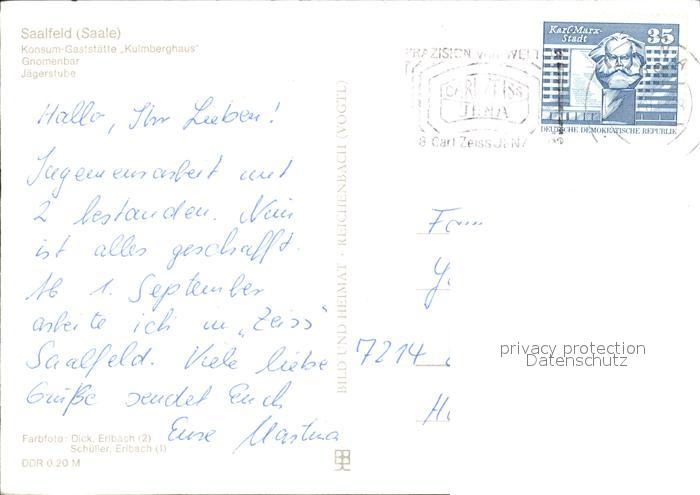 Saalfeld (Saale)
Konsum-Gaststätte „Kulmberghaus"
Gnomenbar
Jägerstube
Hallo, Ihr Lieben!
Ingenieursarbeit mit
2 bestanden. Nun
ist alles geschafft.
Ab 1. September
arbeite ich in „Zeiss"
Saalfeld. Viele liebe
Grüße sendet Euch
Eure Martina
Farbfoto: Dick, Erlbach (2)
Schüller, Erlbach (1)
DDR 0.20 M
BILD UND HEIMAT · REICHENBACH (VOGTL)
PRÄZISION VON WELT
CARL ZEISS
JENA
Carl Zeiss JENA
Karl-Marx-
Stadt
35
DEUTSCHE DEMOKRATISCHE REPUBLIK
Fam
7214
privacy protection
Datenschutz